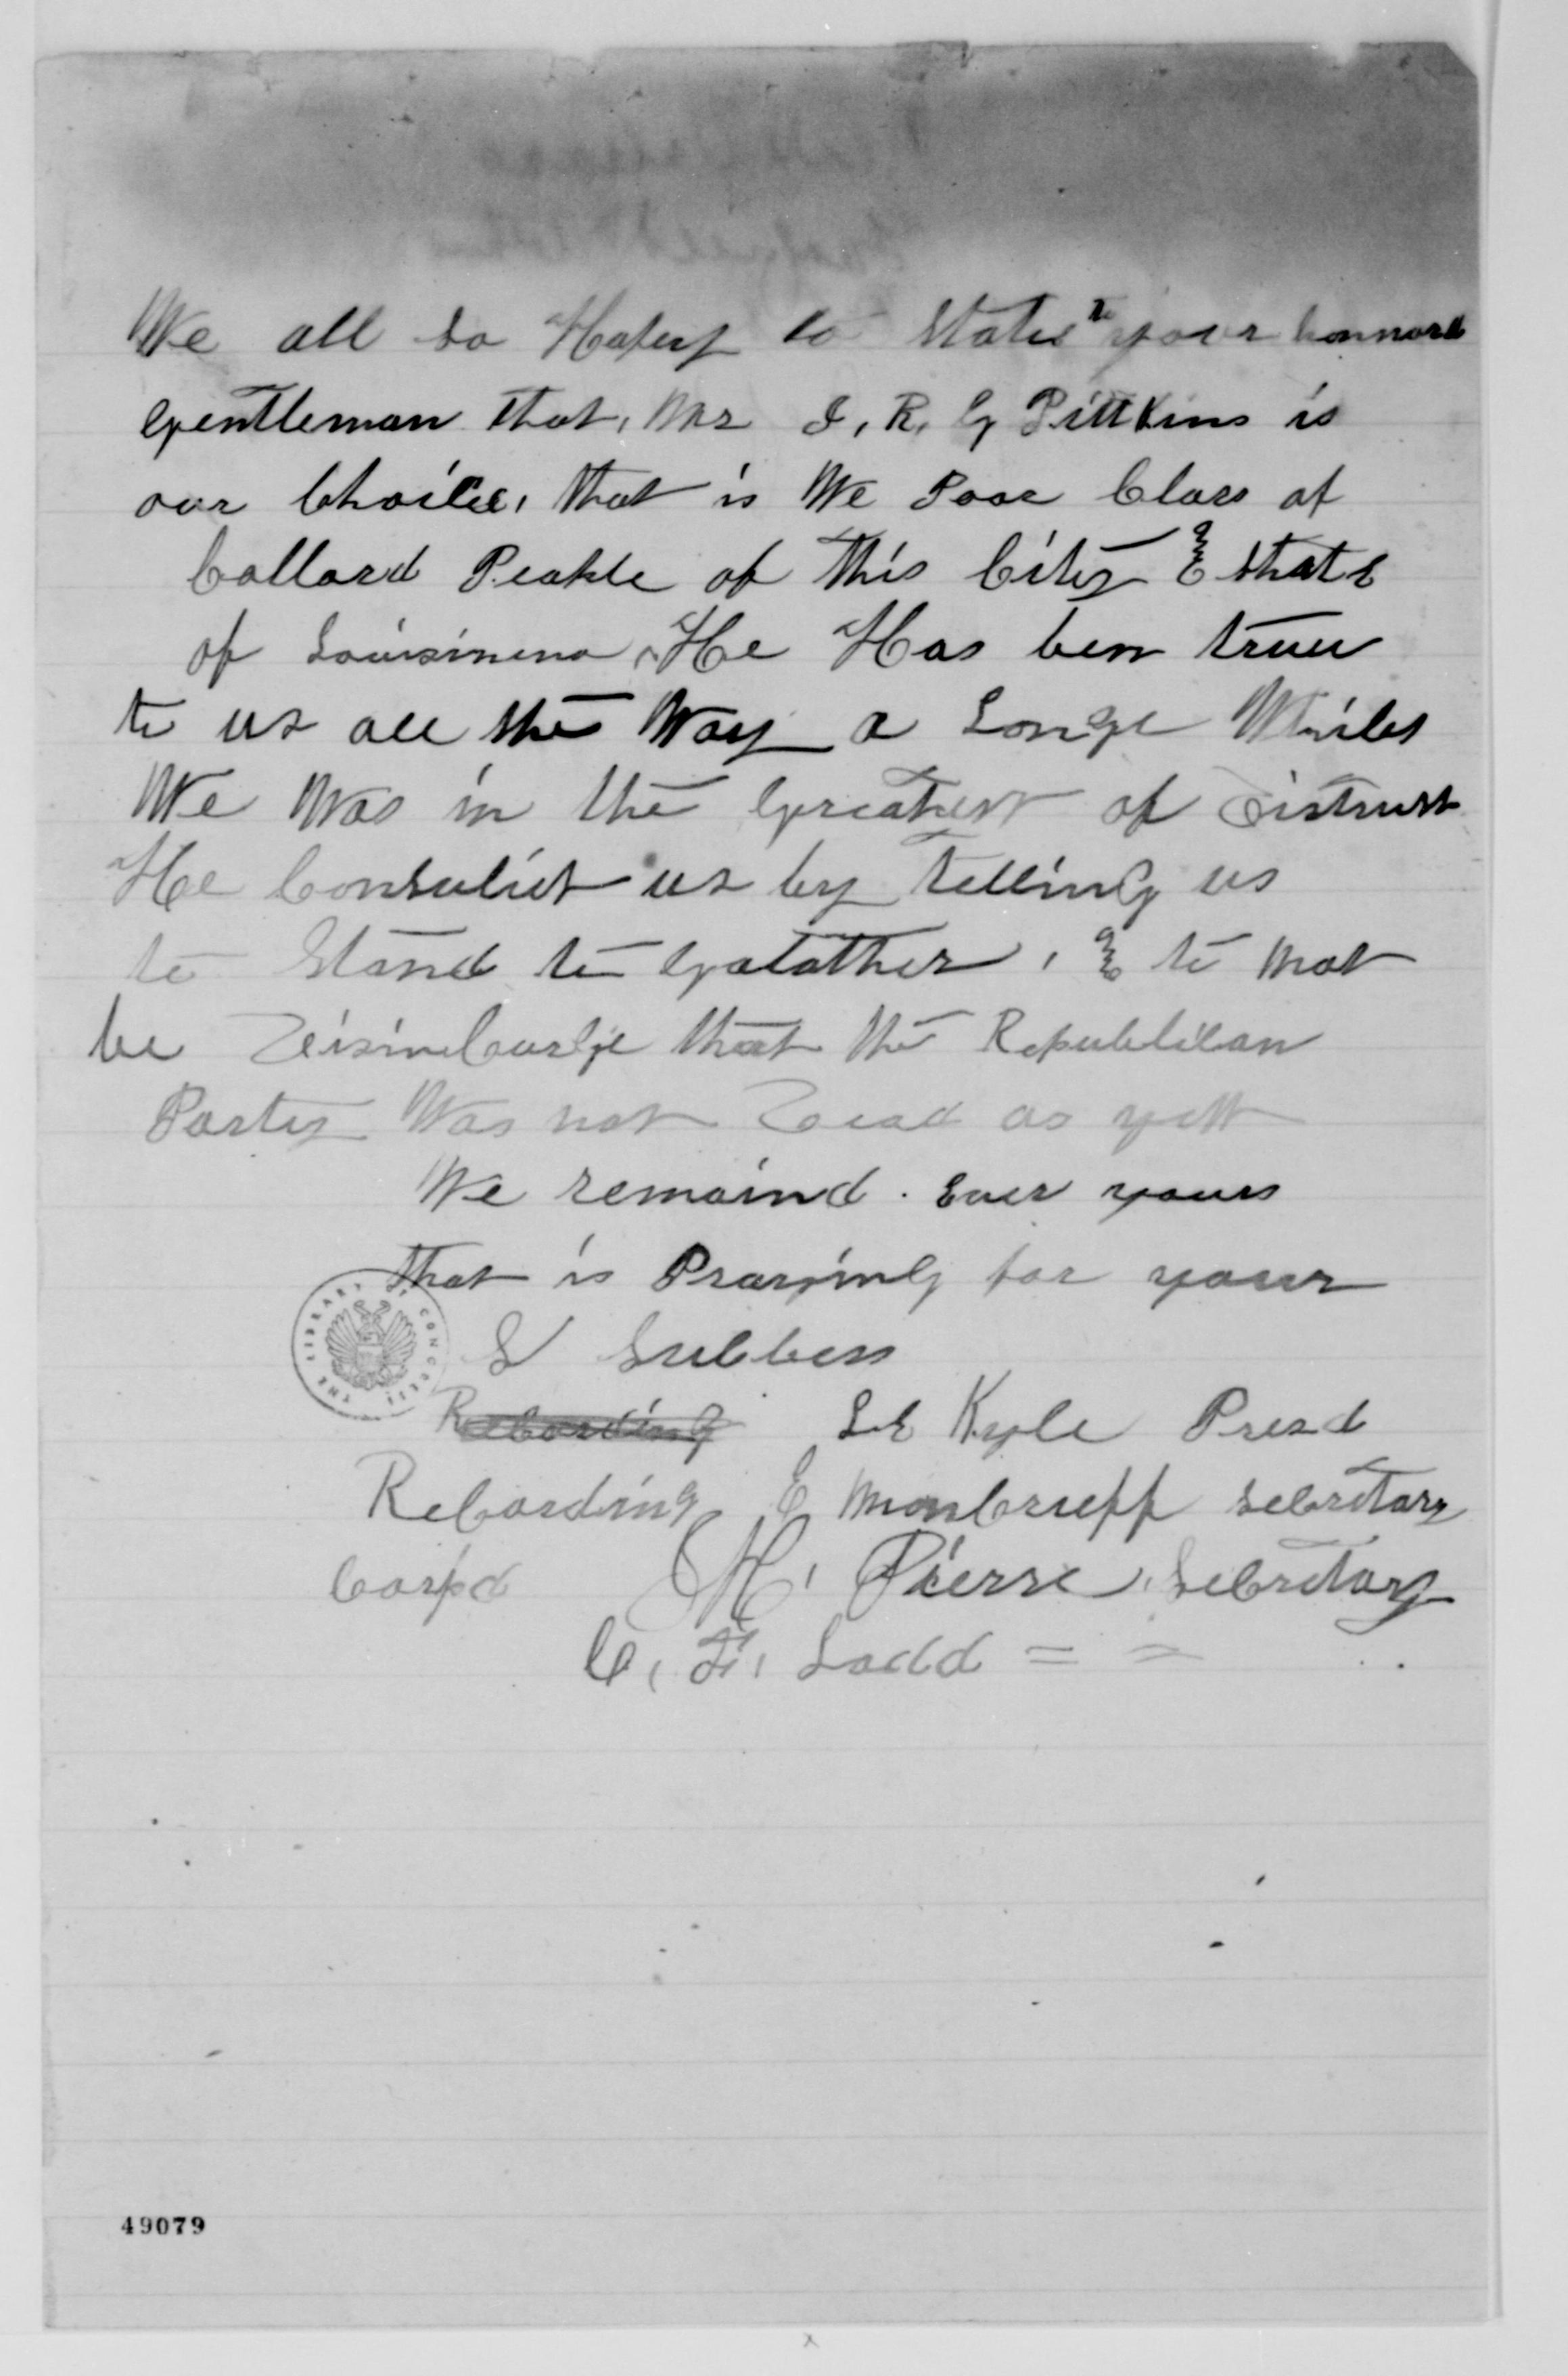 We all so Hapey to State to your honnord
gentleman that, Mr J, R, G Pittkins is
our Choice, that is We Poor Class of
Collord People of this City & State
of Louisinena, He Has ben truu
to us all the Way a Longe Whiles
We Was in the Greatest of Distrust
He Consulist us by telling us
to Stand to gatather, & to not
be Disincourige that the Republican
Partey Was not Dead as yett
We remaind. Ever yours
that is Praying for your
S Suckcess
Recording L E Kyle Presd
Recording E Moncrieff Secretary
Corpd M, Pierre, Secretary
C, F, Ladd = =
THE LIBRARY OF CONGRESS
49079